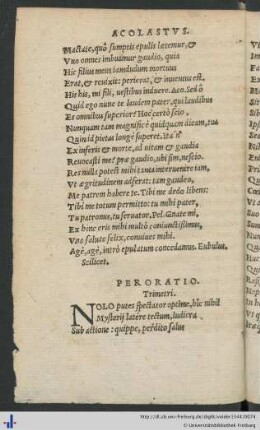 ACOLASTVS.
Mactate, quò sumptis epulis laetemur, &
Vno omnes imbuamur gaudio, quia
Hic filius meus iamdudum mortuus
Erat, & reuixit: perierat, & inuentus est.
His hic, mi fili, uestibus induere. Aco. Sed ô
Quid ego nunc te laudem pater, qui laudibus
Es omnibus superior? Hoc certò scio,
Nunquam tam magnificè quidquam dicam, tua
Quin id pietas longè superet. Ita n̄
Ex inferis & morte, ad uitam & gaudia
Reuocasti me? prae gaudio, ubi sim, nescio.
Res nulla potest mihi tanta interuenire iam,
Vt aegritudinem adferat: tam gaudeo,
Me patrem habere te. Tibi me dedo libens:
Tibi me totum permitto: tu mihi pater,
Tu patronus, tu seruator. Pel. Gnate mi,
Ex hinc eris mihi multò coniunctißimus,
Vno salute felix, conuiuet mihi.
Agè, agè, intrò epulatum concedamus. Eubulus.
Scilicet.
PERORATIO.
Trimetri.
NOLO putes spectator optime, hîc nihil
Mysterij latere tectum, ludicra
Sub actione: quippe, perdito salue
http://dl.ub.uni-freiburg.de/diglit/
© Universitätsbibliothek Freiburg